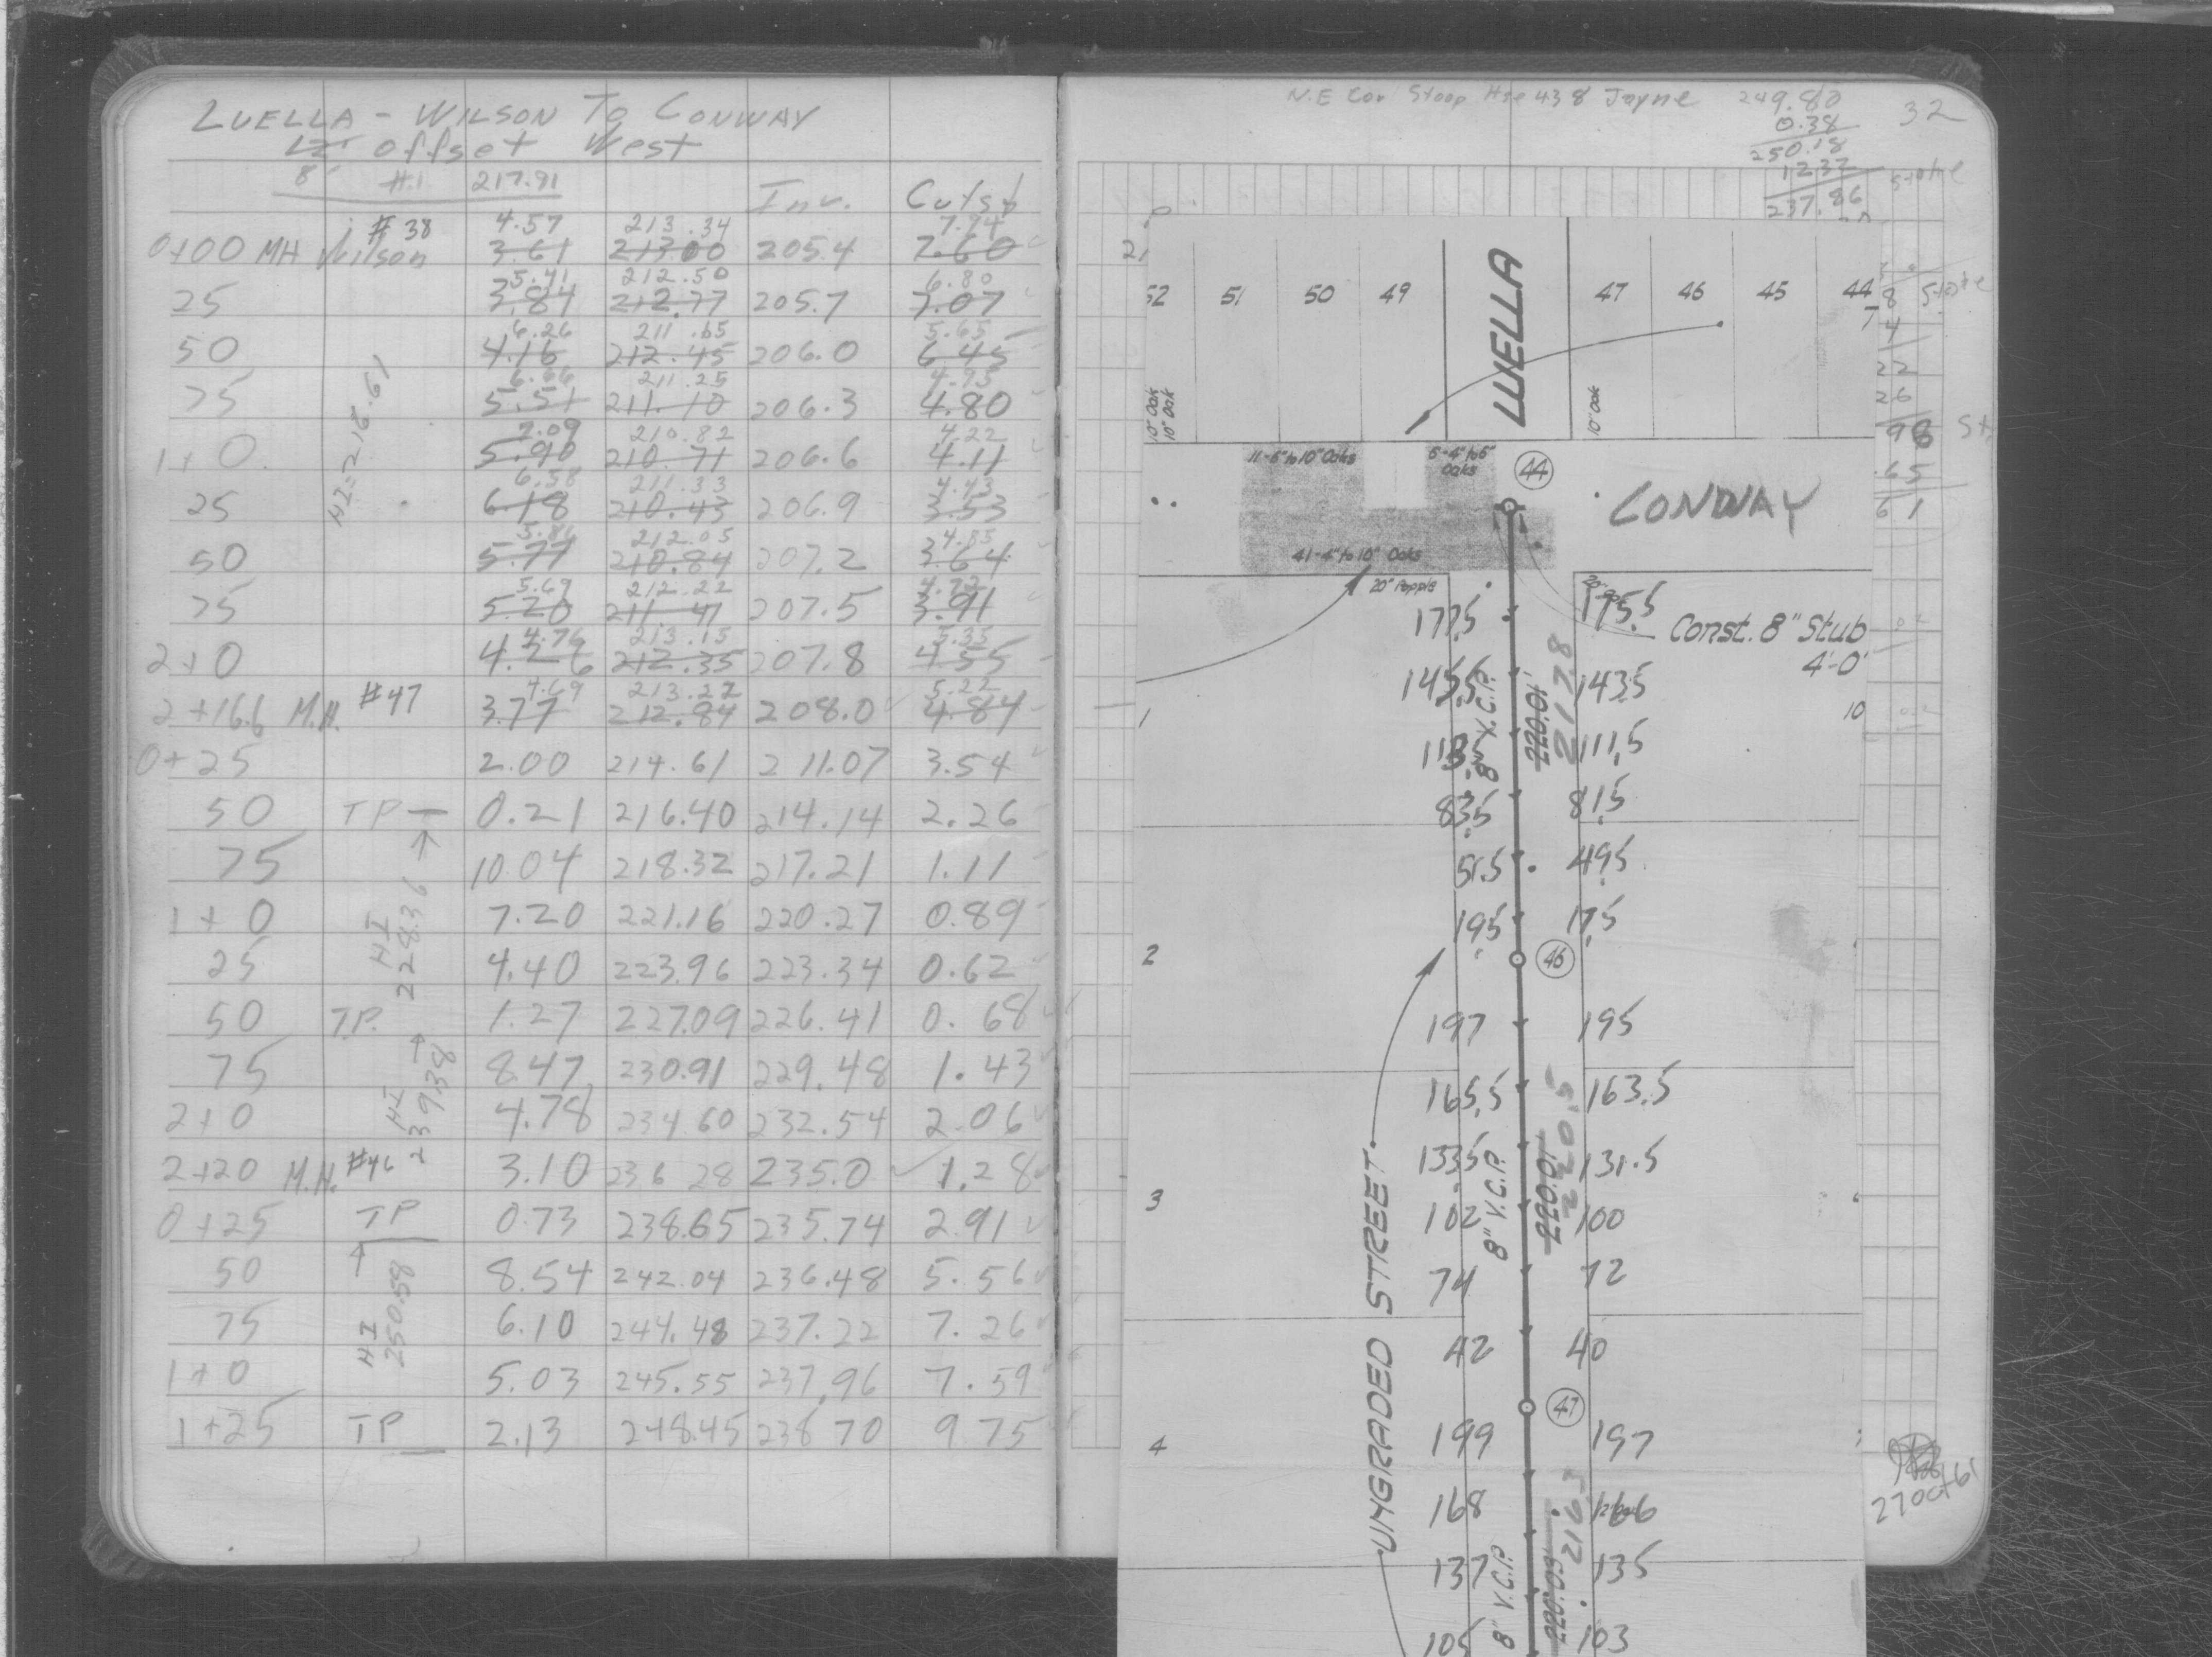 LUELLA - WILSON TO CONWAY
12' offset West
8' H.I 217.91 Inv. Cuts
#38 4.57 213.34 7.94
0+00 MH Wilson 3.61 213.00 205.4 7.60
5.41 212.50 6.80
25 3.84 212.77 205.7 7.07
6.26 211.65 5.65
50 4.16 212.45 206.0 6.45
6.66 211.25 4.95
75 5.51 211.10 206.3 4.80
7.09 210.82 4.22
1+0 5.90 210.71 206.6 4.11
6.58 211.33 4.43
25 6.18 210.43 206.9 3.53
5.86 212.05 4.85
50 5.77 210.84 207.2 3.64
5.69 212.22 4.72
75 5.20 211.41 207.5 3.91
4.76 213.15 5.35
2+0 4.26 212.35 207.8 4.55
4.69 213.22 5.22
2+16.6 M.H. #47 3.77 212.84 208.0 4.84
HI=218.61
0+25 2.00 214.61 211.07 3.54
50 TP 0.21 216.40 214.14 2.26
75 10.04 218.32 217.21 1.11
1+0 7.20 221.16 220.27 0.89
HI 228.36
25 4.40 223.96 223.34 0.62
50 TP. 1.27 227.09 226.41 0.68
75 8.47 230.91 229.48 1.43
HI 239.38
2+0 4.78 234.60 232.54 2.06
2+20 M.H. #46 3.10 236.28 235.0 1.28
0+25 TP 0.73 238.65 235.74 2.91
50 8.54 242.04 236.48 5.56
75 6.10 244.48 237.22 7.26
HI 250.58
1+0 5.03 245.55 237.96 7.59
1+25 TP 2.13 248.45 238.70 9.75
N.E Cor Stoop Hse 438 Jayne 249.80
0.38
250.18
12.32
237.86
32
52 51 50 49 LUELLA 47 46 45 44
10" Oak
10" Oak
10" Oak
11-6" to 10" Oaks
5-4" to 6" Oaks
44
CONWAY
41-4" to 10" Oaks
20" Popple
177.5 175.5
Const. 8" Stub
4'-0"
145.5 143.5
8" V.C.P. 220.01' 217.8
1 10
113.5 111.5
83.5 81.5
51.5 49.5
19.5 17.5
2 46
197 195
165.5 163.5
133.5 131.5
8" V.C.P. 220.01' 220.5
3 102 100
74 72
42 40
47
UNGRADED STREET
4 199 197
168 166
137 135
8" V.C.P. 220.03' 216.3
105 103
27 Oct 61